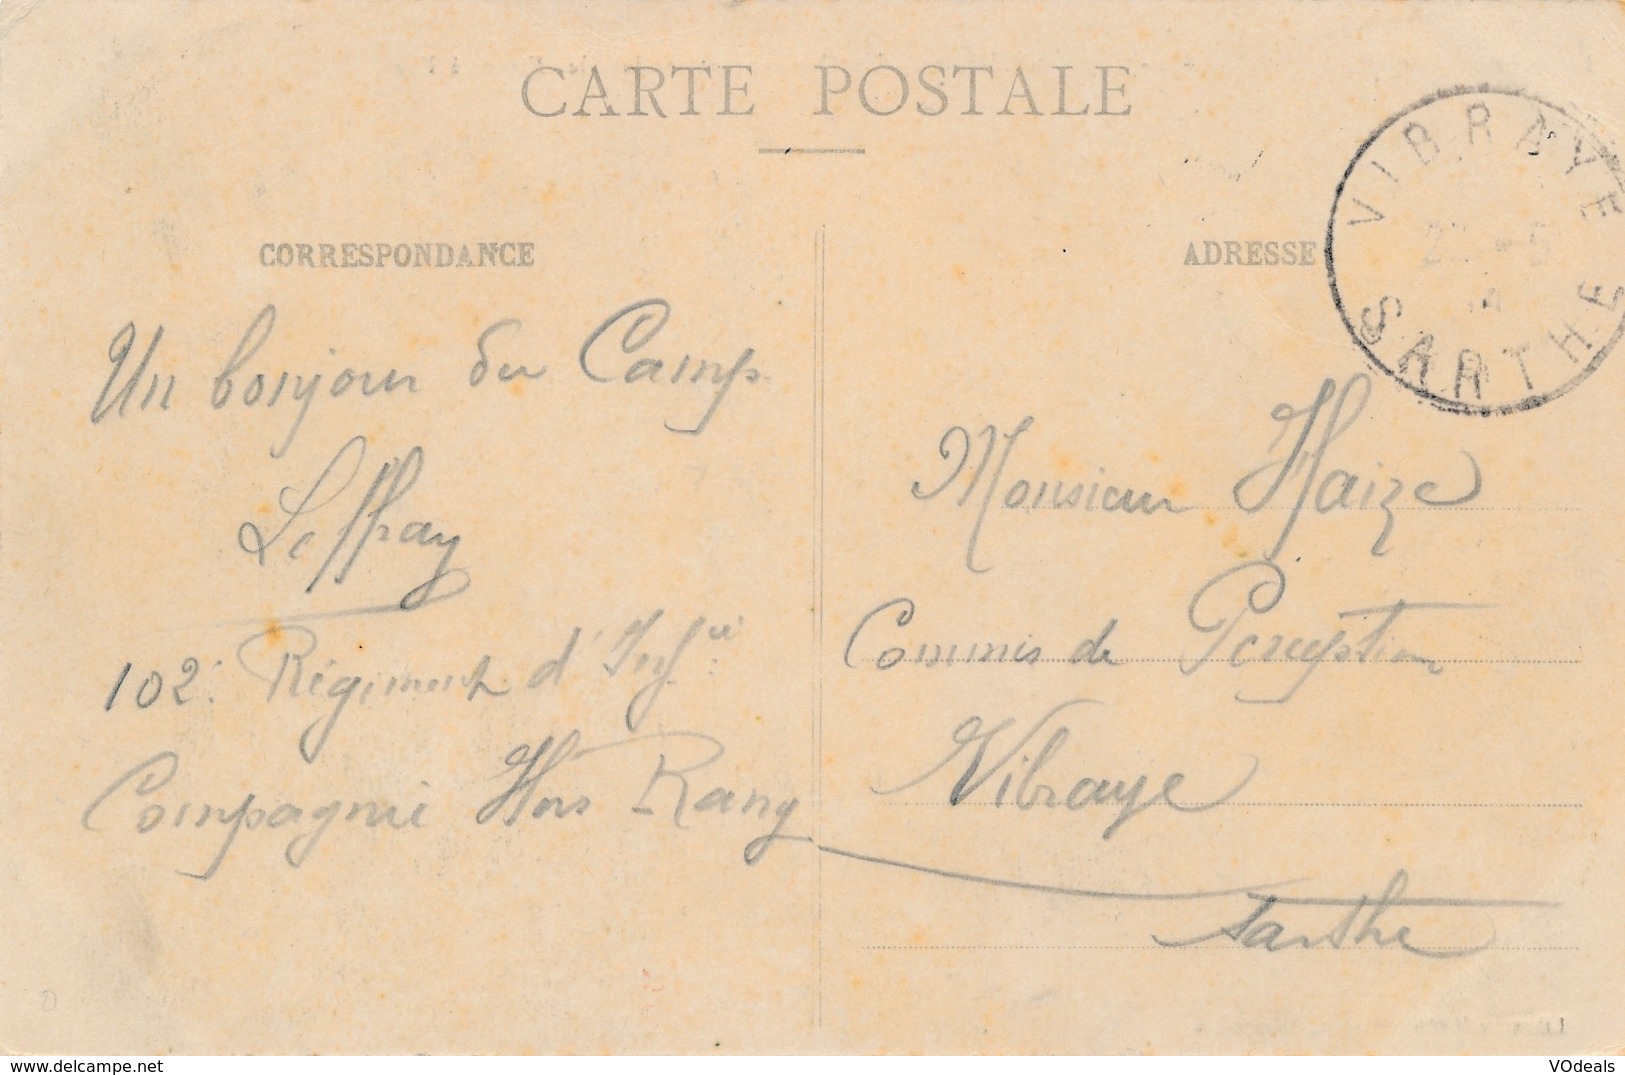 CARTE POSTALE
CORRESPONDANCE
Un bonjour du Camp
Leffray
102e Régiment d'Infie
Compagnie Hors Rang
ADRESSE
VIBRAYE
14
SARTHE
Monsieur Haize
Commis de Perception
Vibraye
Sarthe
www.delcampe.net
VOdeals